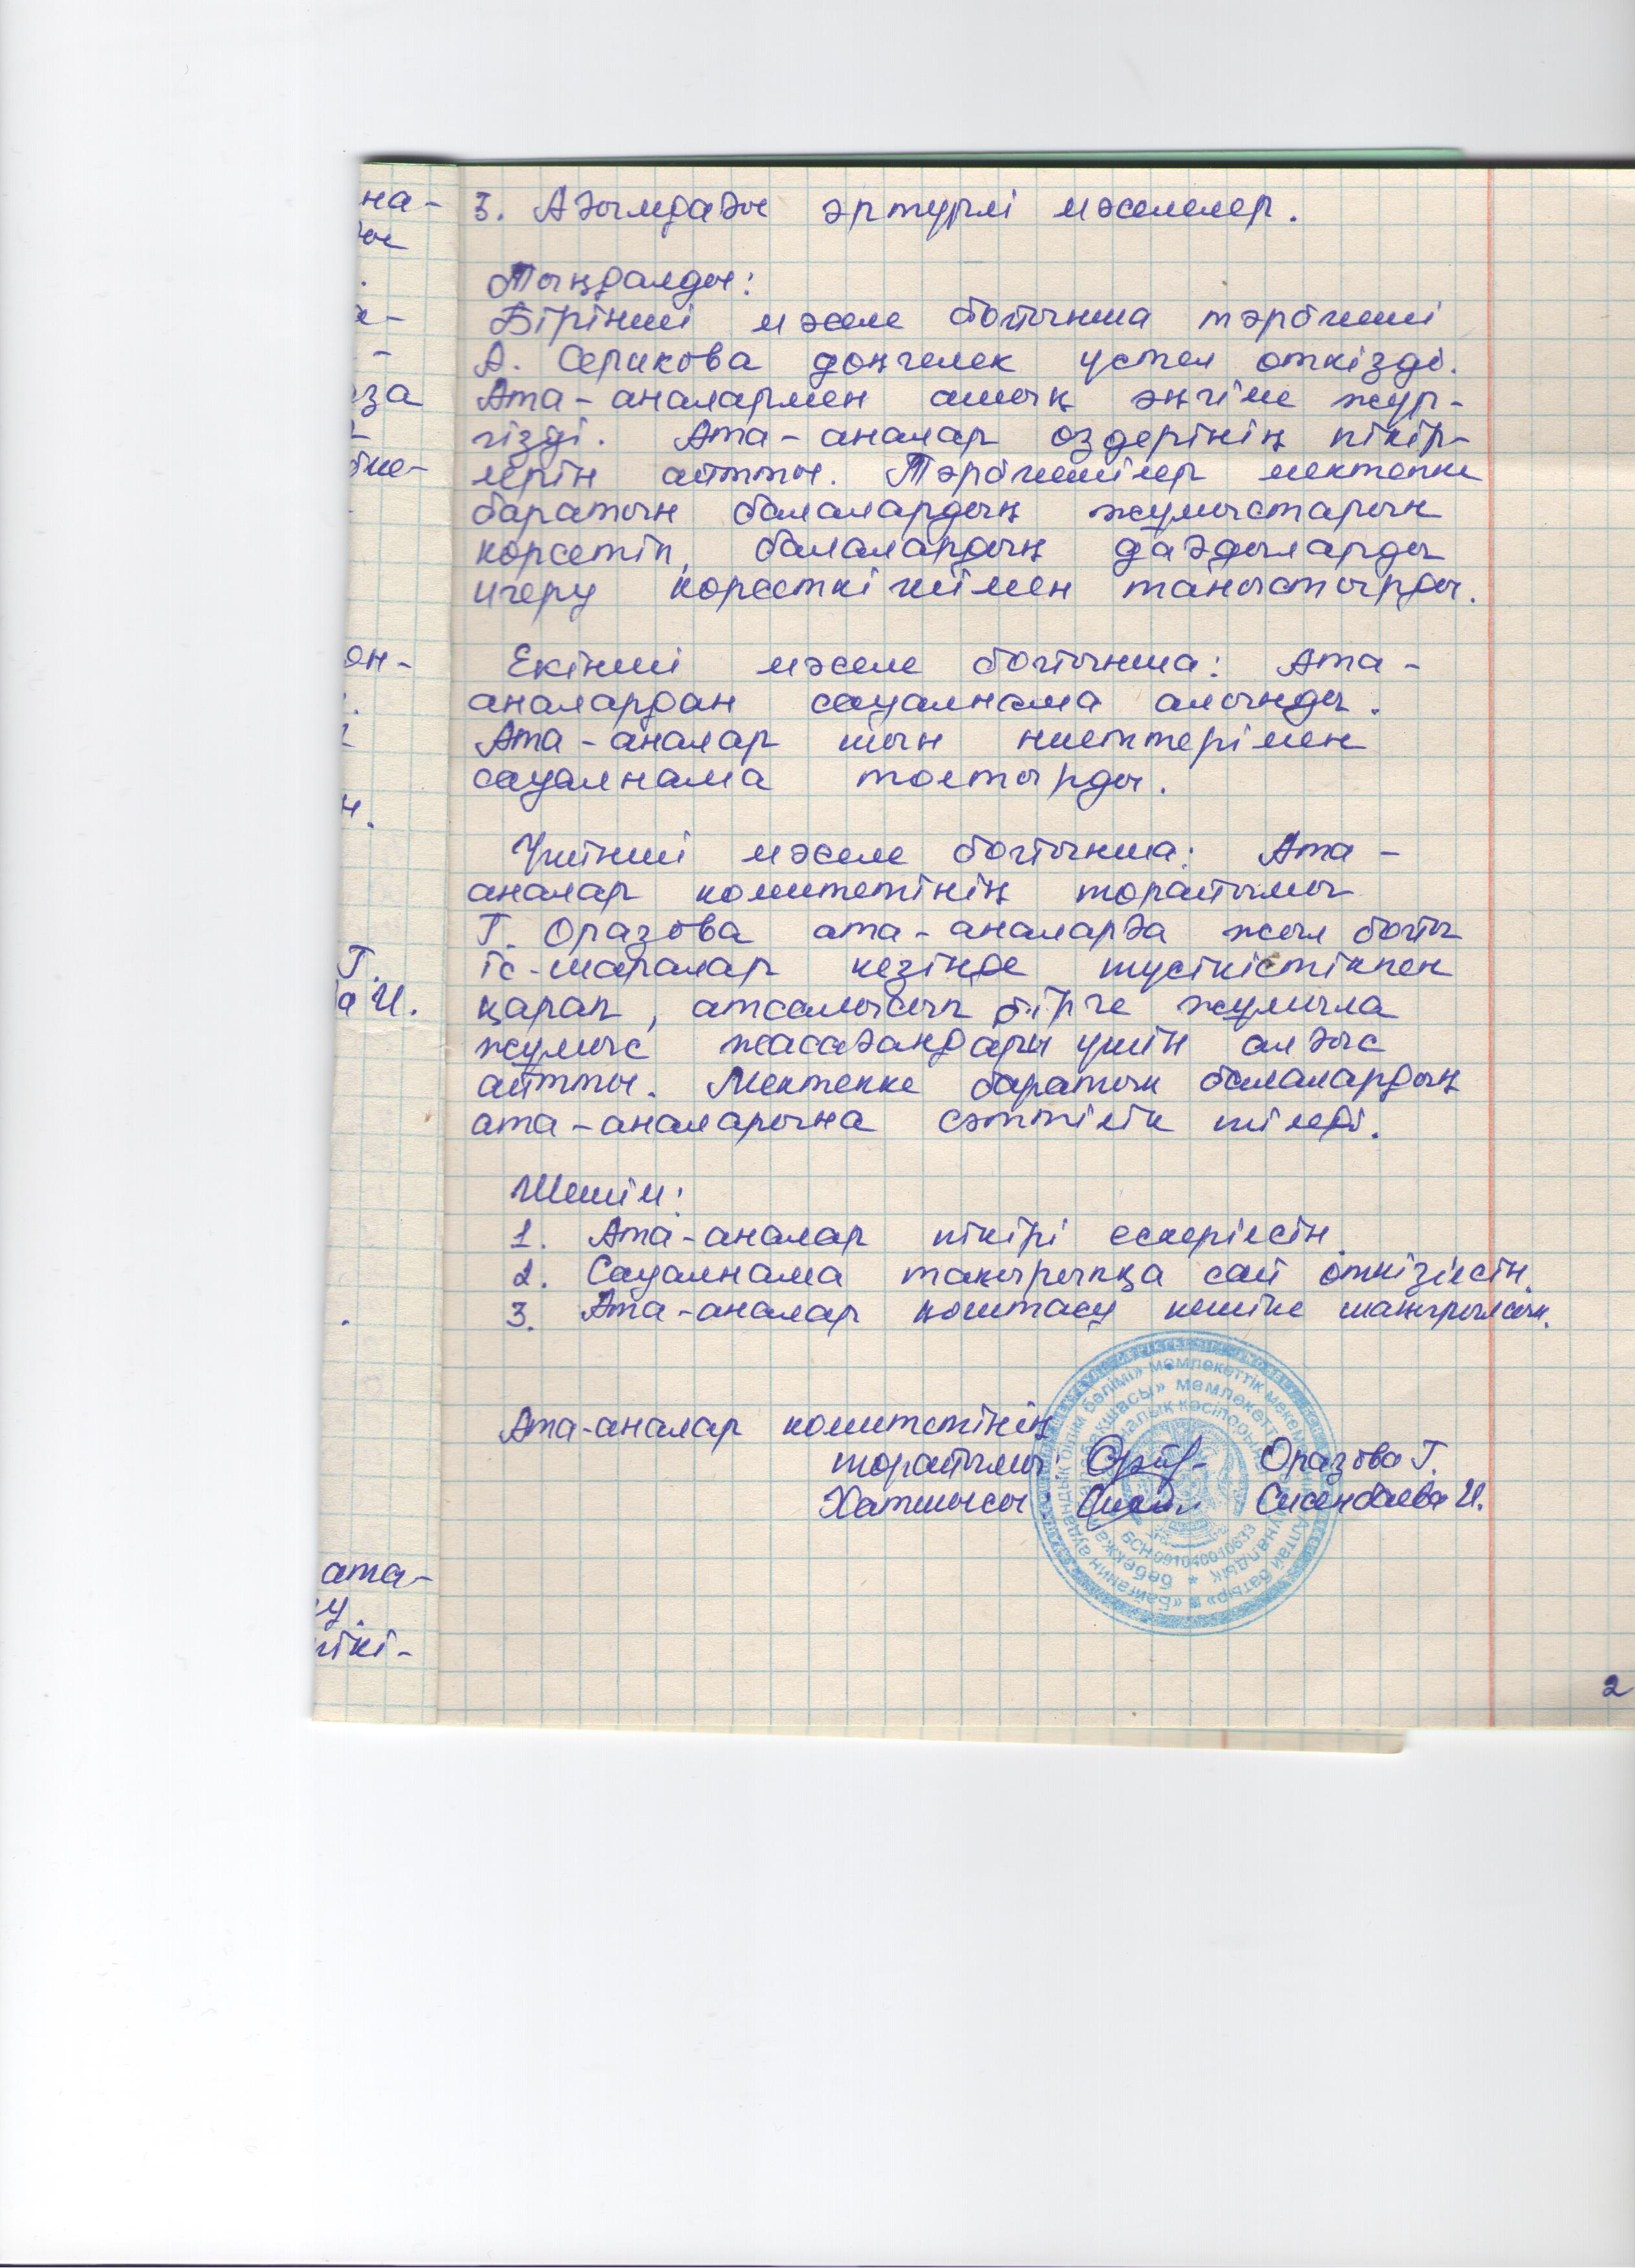 3. Ағымдағы әртүрлі мәселелер.
Тыңдалды:
Бірінші мәселе бойынша тәрбиеші
А. Серикова дөңгелек үстел өткізді.
Ата-аналармен ашық әңгіме жүр-
гізді. Ата-аналар өздерінің пікір-
лерін айтты. Тәрбиешілер мектепке
баратын балалардың жұмыстарын
көрсетіп, балалардың дағдыларды
игеру көрсеткішімен таныстырды.
Екінші мәселе бойынша: Ата-
аналардан сауалнама алынды.
Ата-аналар шын ниеттерімен
сауалнама толтырды.
Үшінші мәселе бойынша: Ата-
аналар комитетінің төрайымы
Г. Оразова ата-аналарға жыл бойы
іс-шаралар кезінде түсіністікпен
қарап, атсалысып бірге жұмыла
жұмыс жасағандары үшін алғыс
айтты. Мектепке баратын балалардың
ата-аналарына сәттілік тіледі.
Шешім:
1. Ата-аналар пікірі ескерілсін.
2. Сауалнама тақырыпқа сай өткізілсін.
3. Ата-аналар қоштасу кешіне шақырылсын.
Ата-аналар комитетінің
төрайымы: Оразова Г.
Хатшысы: Сисенбаева И.
на-
за
он-
н.
Г.
а И.
ата-
у.
пікі-
2